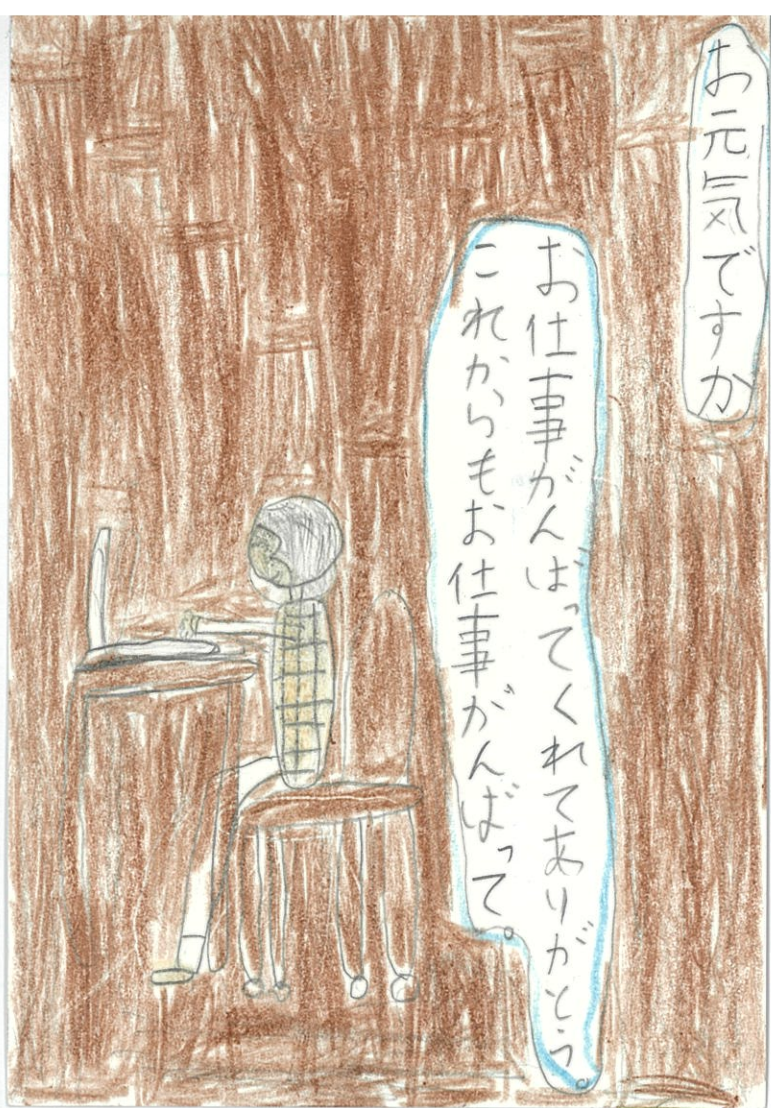 お元気ですか
お仕事がんばってくれてありがとう。
これからもお仕事がんばって。